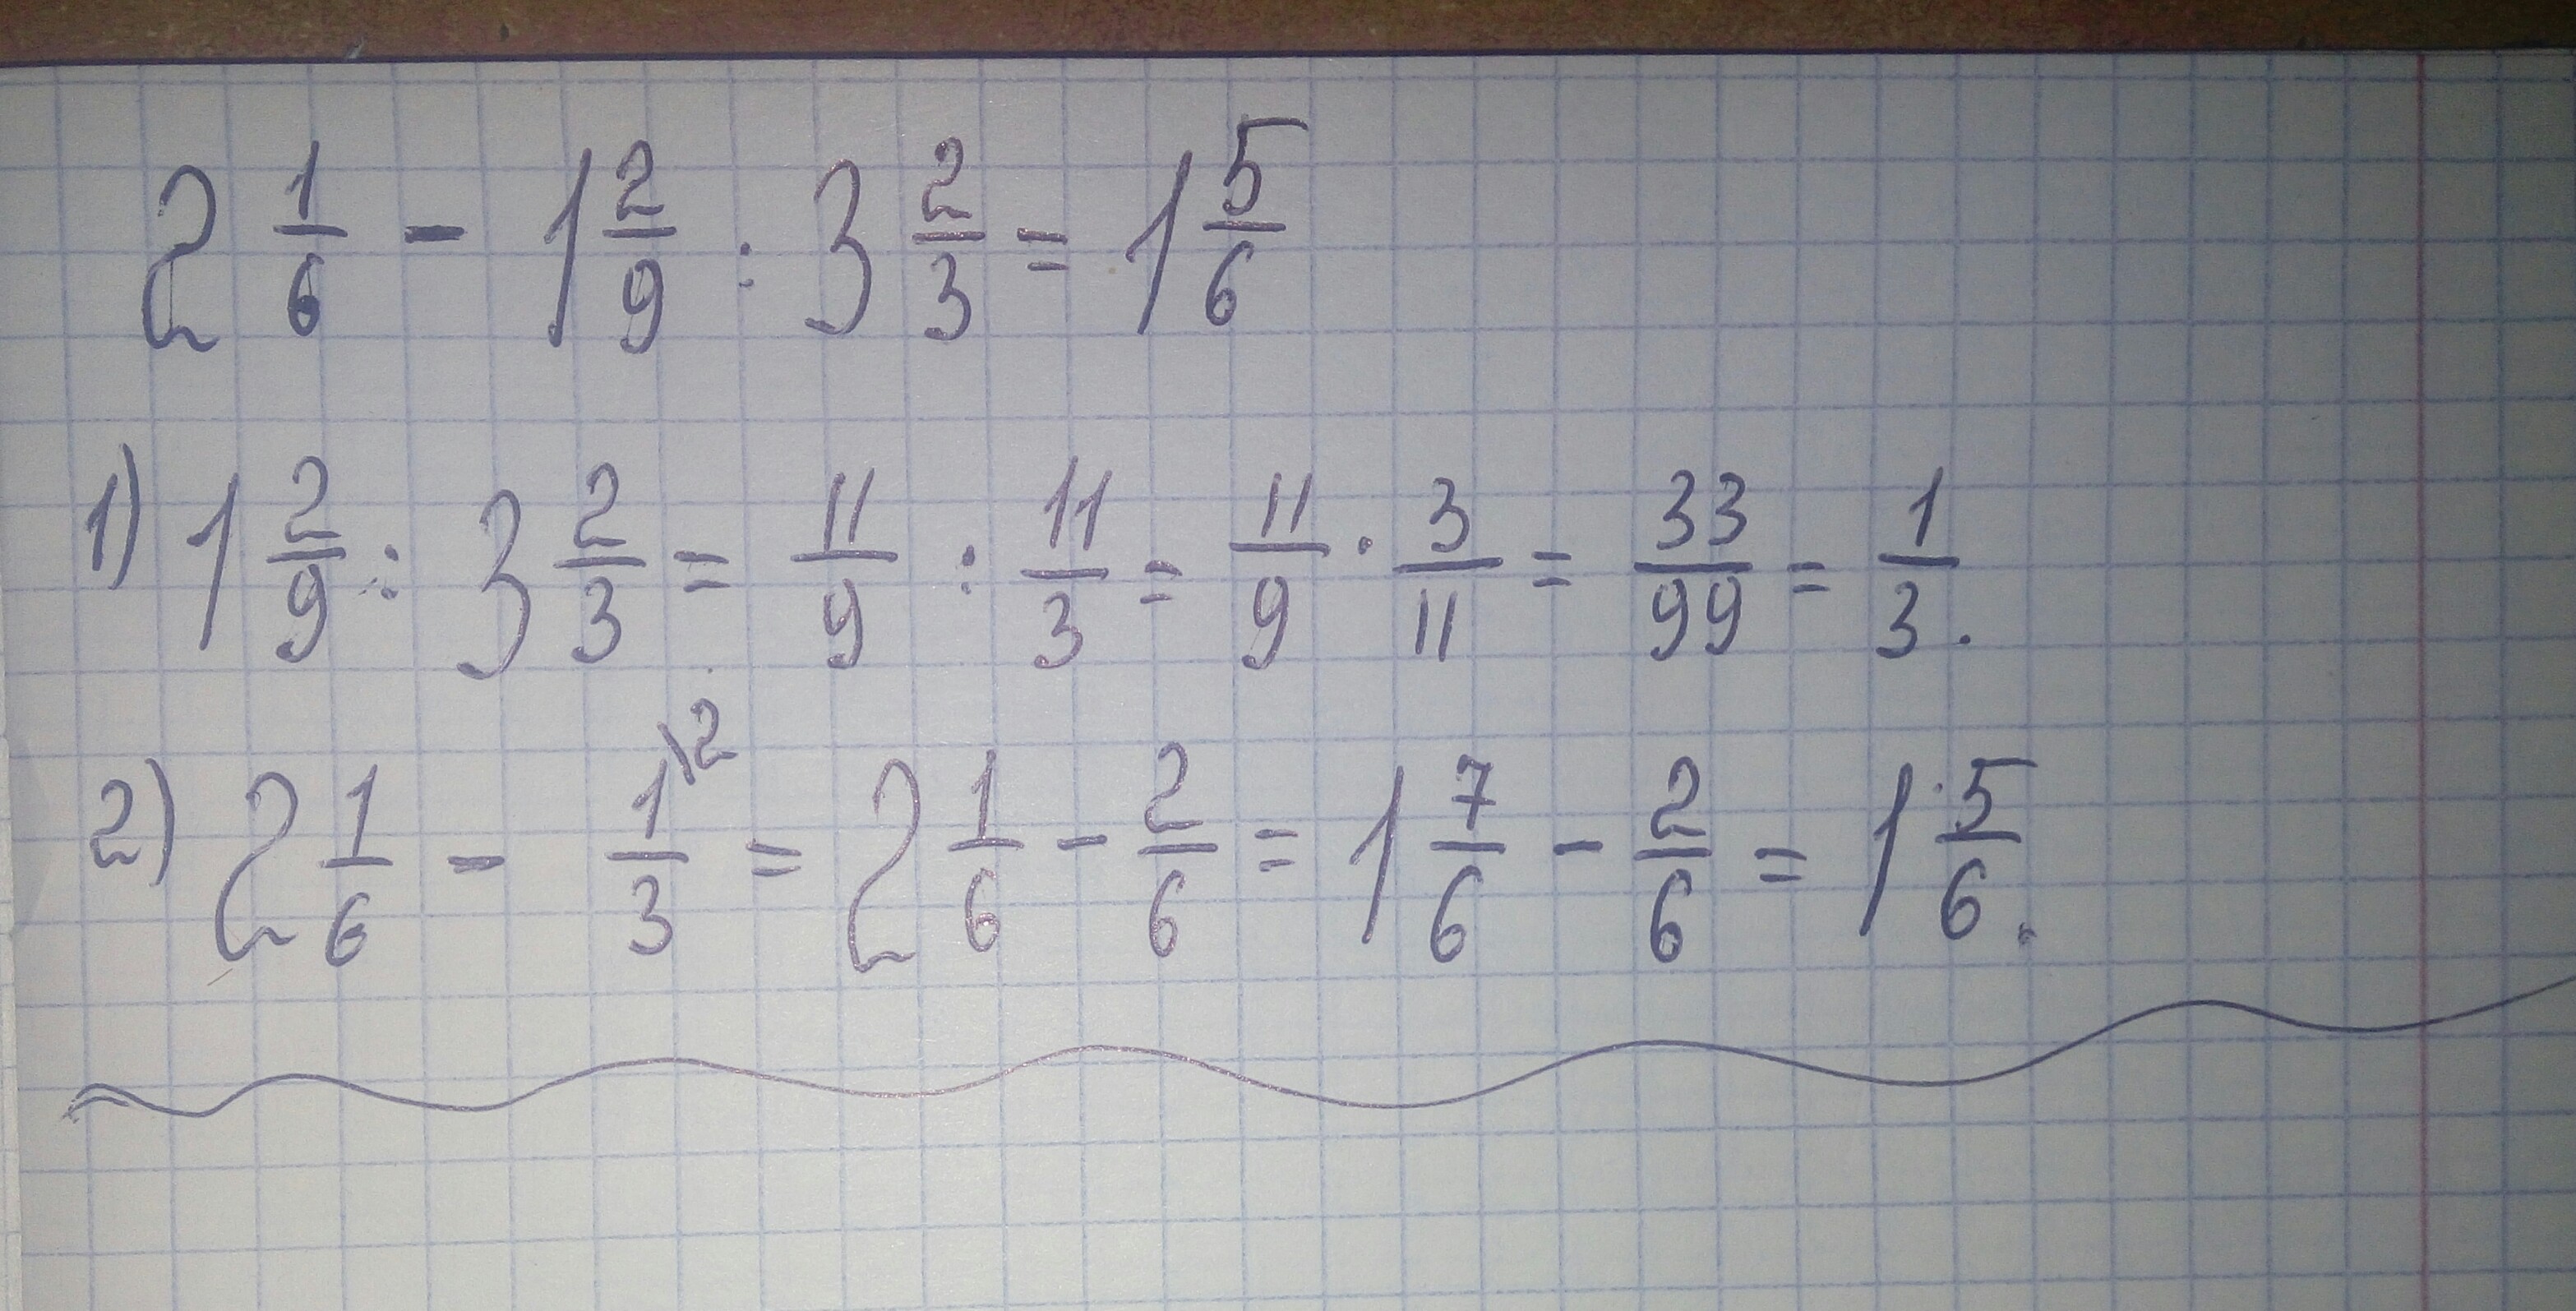 2 1/6 - 1 2/9 : 3 2/3 = 1 5/6
1) 1 2/9 : 3 2/3 = 11/9 : 11/3 = 11/9 · 3/11 = 33/99 = 1/3.
2) 2 1/6 - 1\2/3 = 2 1/6 - 2/6 = 1 7/6 - 2/6 = 1 5/6.